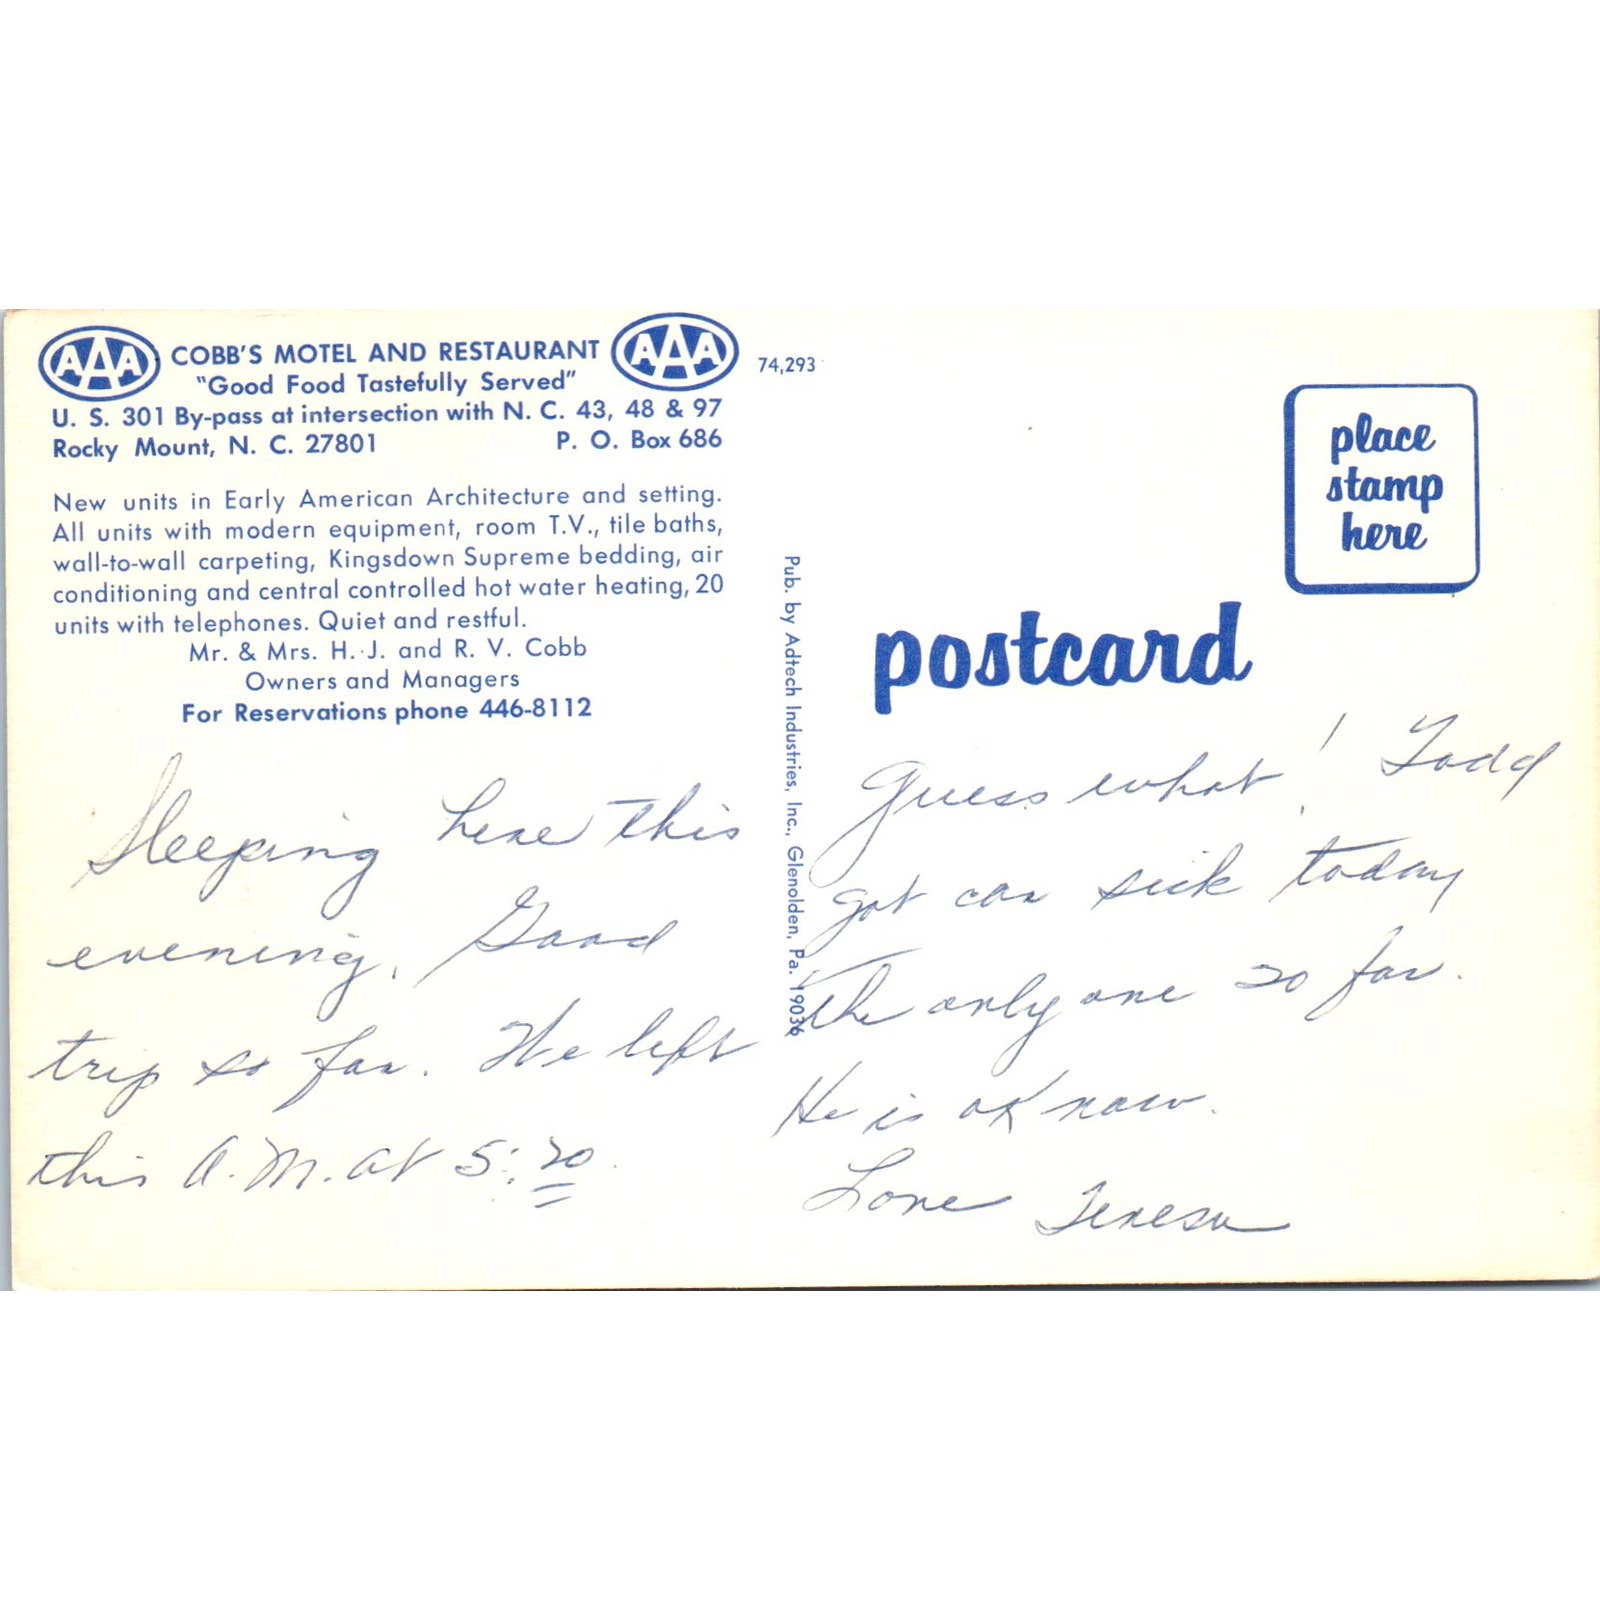 AAA COBB'S MOTEL AND RESTAURANT AAA
"Good Food Tastefully Served"
U. S. 301 By-pass at intersection with N. C. 43, 48 & 97
Rocky Mount, N. C. 27801 P. O. Box 686
New units in Early American Architecture and setting.
All units with modern equipment, room T.V., tile baths,
wall-to-wall carpeting, Kingsdown Supreme bedding, air
conditioning and central controlled hot water heating, 20
units with telephones. Quiet and restful.
Mr. & Mrs. H. J. and R. V. Cobb
Owners and Managers
For Reservations phone 446-8112
Sleeping here this
evening. Good
trip so far. We left
this A.M. at 5:20.
74,293
Pub. by Adtech Industries, Inc., Glenolden, Pa. 19036
place
stamp
here
postcard
Guess what! Todd
got car sick today
The only one so far.
He is ok now.
Love Teresa